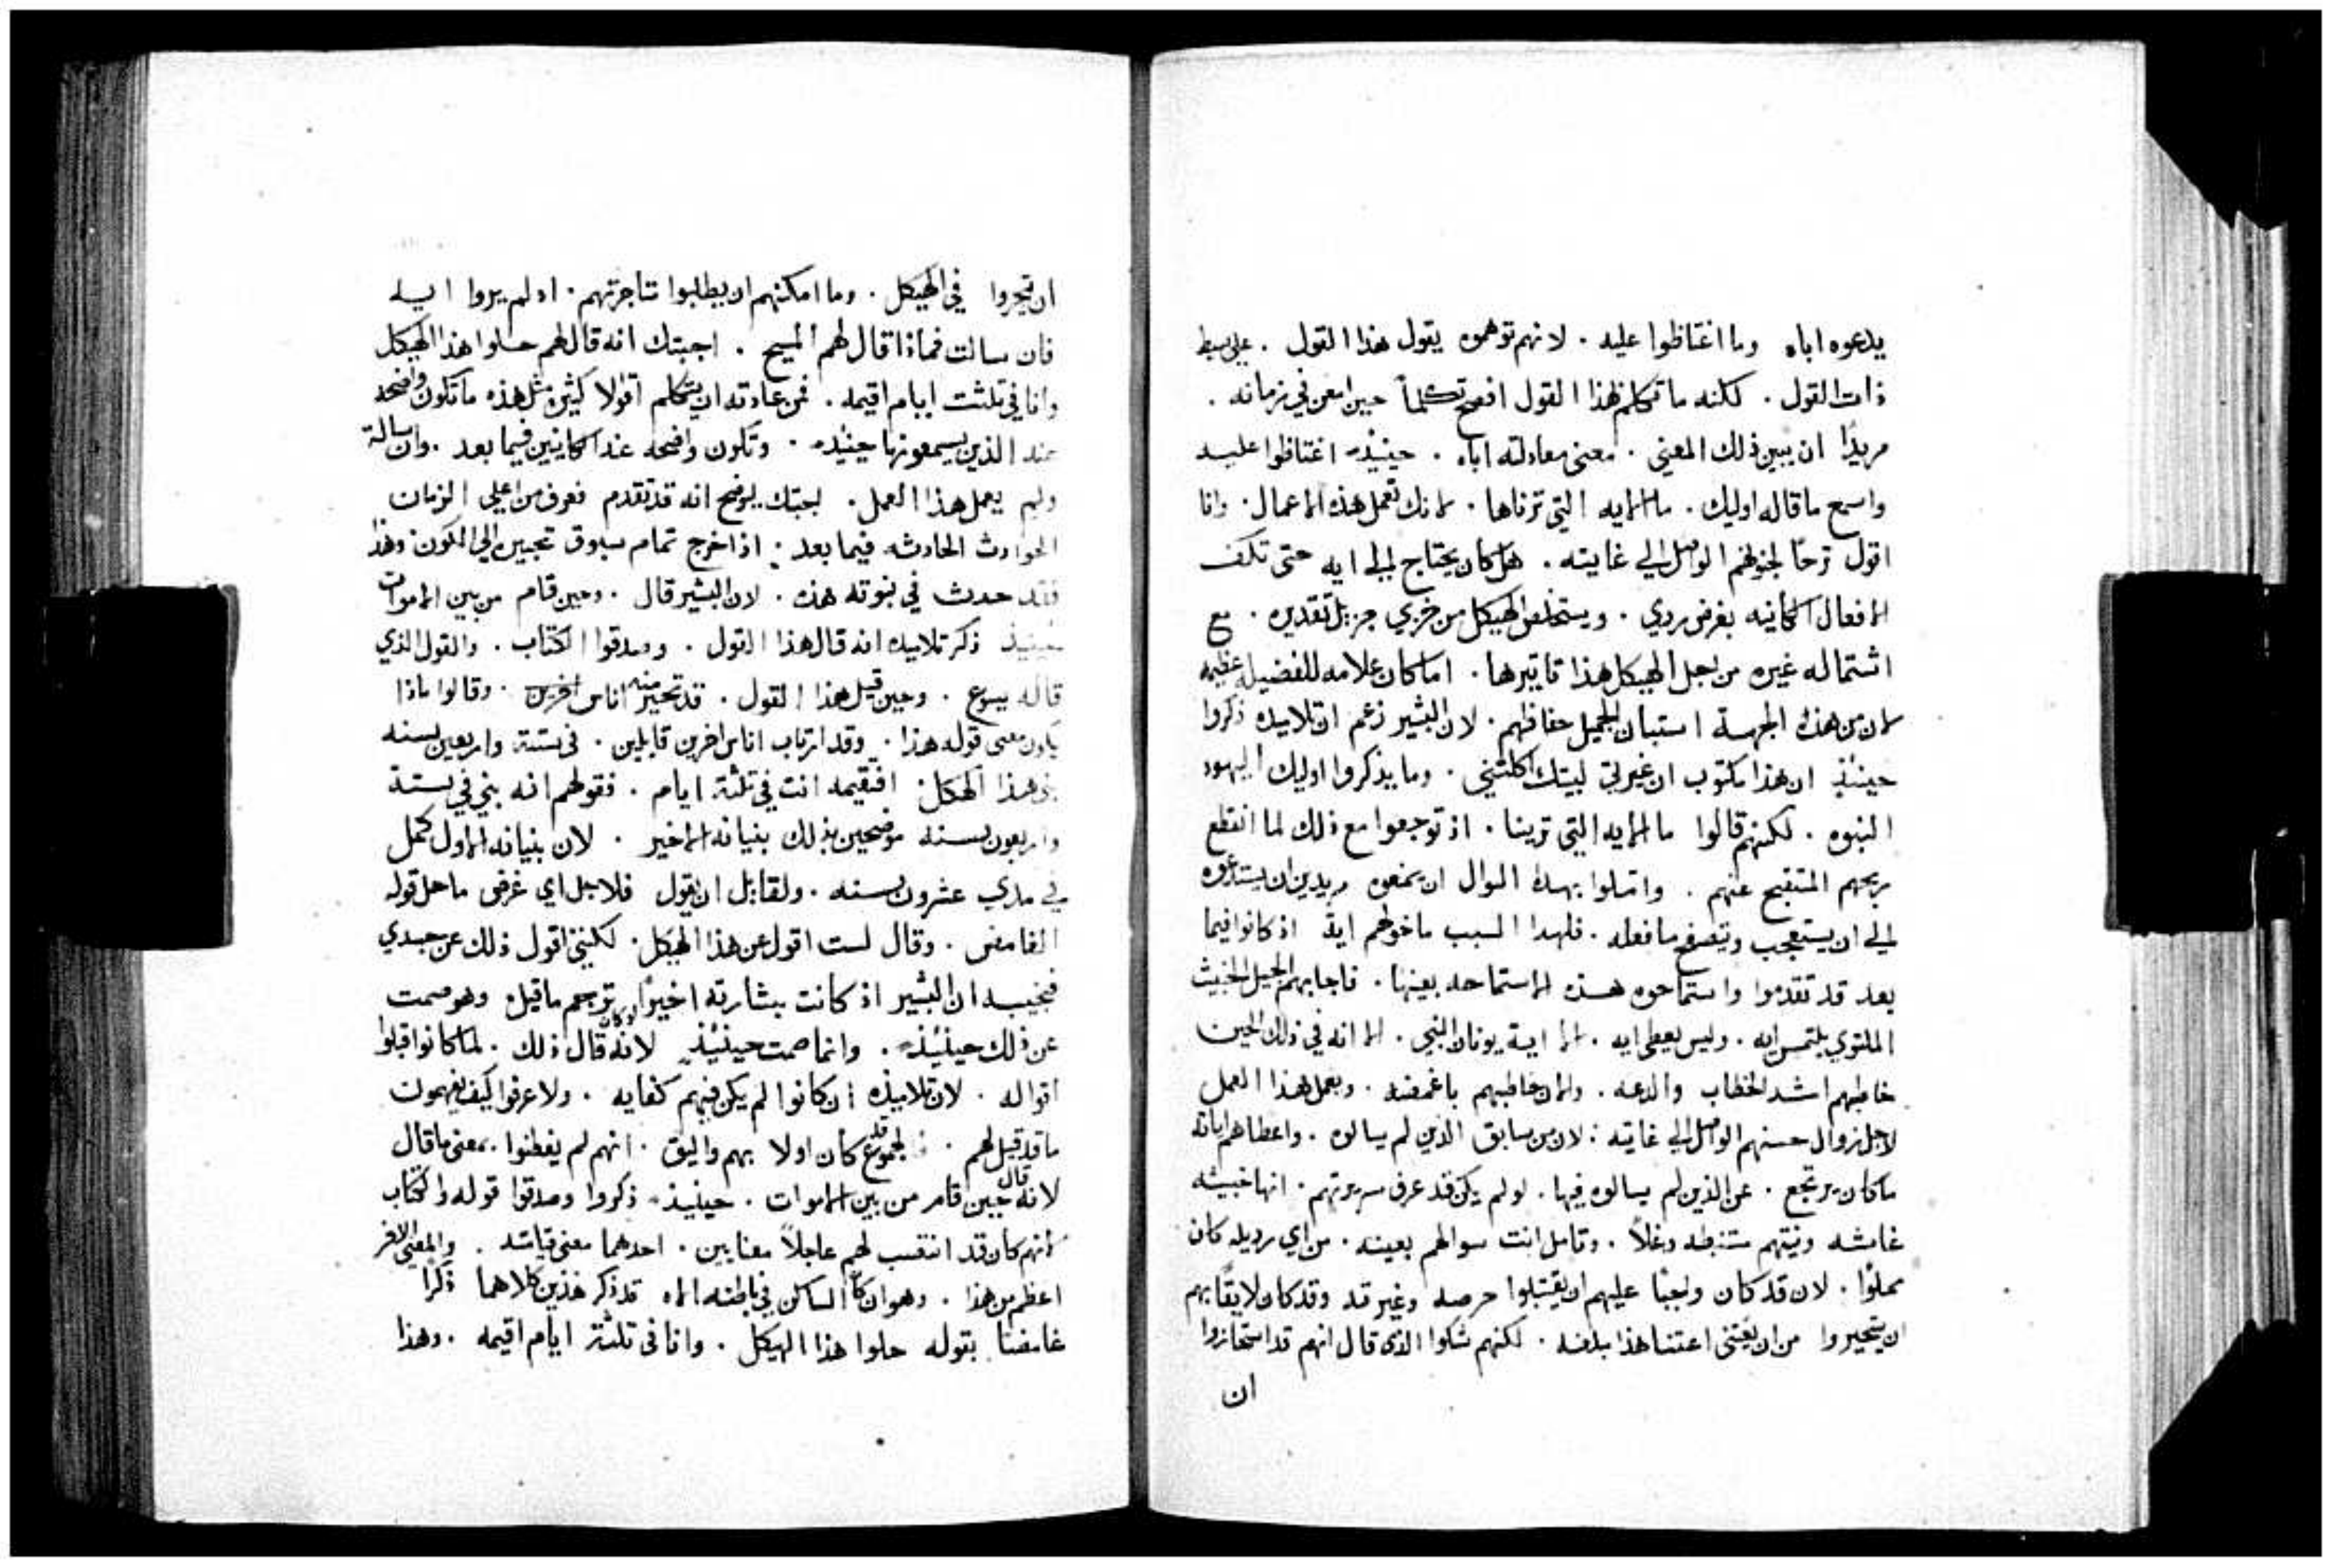 يدعوه اباه وما اغتاظوا عليه . لانهم توهموه يقول هذا القول . علي بسيط
ذات القول . لكنه ما تكلم هذا القول افصح تكلماً حين امعن في زمانه .
مريدًا ان يبين ذلك المعني . معني معادلته اباه . حينيذ اغتاظوا عليه
واسمع ما قاله اوليك . ما الايه التي ترناها . لانك تعمل هذه الاعمال . وانا
اقول ترحًا لجنونهم الواصل الي غايته . هل كان يحتاج الي ايه حتى تكف
الافعال الكاينه بغرض ردي . ويستخلص الهيكل من خزي جزيل تقديره . مع
اشتماله غيره من اجل الهيكل هذا تاتيرها . اما كان علامه للفضيله عظيمه
لان من هذه الجهة استبان الجميل حفاظهم . لان البشير زعم ان تلاميده ذكروا
حينيذ ان هذا مكتوب ان غيرتي لبيتك اكلتني . وما يذكروا اوليك اليهود
النبوه . لكنهم قالوا ما الايه التي ترينا . اذ توجعوا مع ذلك لما انقطع
ربحهم المتقبح عنهم . واملوا بهذا السوال ان يمنعوه مريدين ان يستدعوه
الي ان يستعجب ويتصفح ما فعله . فلهدا السبب ما خولهم ايةً اذ كانوا فيما
بعد قد تقدموا واستماحوه هذه الاستماحه بعينها . فاجابهم الجيل الخبيث
الملتوي يلتمس ايه . وليس يعطى ايه . الا اية يونان النبي . الا انه في ذلك الحين
خاطبهم اشد الخطاب والدعه . والان خاطبهم باغمضه . وبعمل هذا العمل
لاجل زوال حسنهم الواصل الي غايته : لان من سابق الذين لم يسالوه . واعطاهم اياته
ما كان يرتجع . عن الذين لم يسالوه فيها . لو لم يكن قد عرف سريرتهم . انها خبيثه
غامشه ونيتهم مستبطنه دغلاً . وتامل انت سوالهم بعينه . من اي رديله كان
مملوًا . لان قد كان واجبًا عليهم ان يقتبلوا حرصه وغيرته وقد كان لايقًا بهم
ان يتحيروا من ان يعتني اعتنا هذا بلغه . لكنهم شكوا الذي قال انهم قد استجازوا
ان
ان يتجروا في الهيكل . وما امكنهم ان يبطلوا تتاجرتهم . اذ لم يروا ايه
فان سالت فماذا قال لهم المسيح . اجبتك انه قال لهم حلوا هذا الهيكل
وانا في تلثت ايام اقيمه . فمن عادته ان يتكلم اقوالا كثيره مثل هذه ما تكون واضحه
عند الذين يسمعونها حينيذ . وتكون واضحه عند الكاينين فيما بعد . وان سالة
ولم يعمل هذا العمل . اجبتك يوضح انه قد تقدم فعرف من اعلى الزمان
الحوادث الحادثه فيما بعد : اذا خرج تمام سبوق تخبيره الى الكون وهذا
فقد حدث في نبوته هذه . لان البشير قال . وحين قام من بين الاموات
حينيذ ذكر تلاميده انه قال هذا القول . وصدقوا الكتاب . والقول الذي
قاله يسوع . وحين قيل هذا القول . قد تحير منه اناس اخرين . وقالوا ماذا
يكون معنى قوله هذا . وقد ارتاب اناس اخرين قايلين . في ستة واربعين سنه
بني هذا الهيكل . افتقيمه انت في تلثة ايام . فقولهم انه بني في ستة
واربعون سنه موضحين بذلك بنيانه الاخير . لان بنيانه الاول كمل
في مدي عشرون سنه . ولقايل ان يقول فلاجل اي غرض ما حل قوله
الغامض . وقال لست اقول عن هذا الهيكل . لكنني اقول ذلك عن جسدي
فيجيب ان البشير اذ كانت بشارته اخيرًا ترجم ما قيل وهو صمت
عن ذلك حينيذ . وانما صمت حينيذ لانه لو كان قال ذلك . لما كانوا قبلوا
اقواله . لان تلاميذه ان كانوا لم يكن فيهم كفايه . ولا عرفوا كيف يفهمون
ما قد قيل لهم . الجموع كان اولا بهم واليق . انهم لم يفطنوا بمعني ما قال
لانه قال حين قام من بين الاموات . حينيذ ذكروا وصدقوا قوله والكتاب
لانهم كان قد انتسب لهم عاجلاً معنايين . احدهما معني قيامته . والمعني الاخر
اعظم من هذا . وهو ان كان الساكن في باطنه الاه قد ذكر هذين كلاهما ذكرًا
غامضًا بقوله حلوا هذا الهيكل . وانا في تلثة ايام اقيمه . وهذا